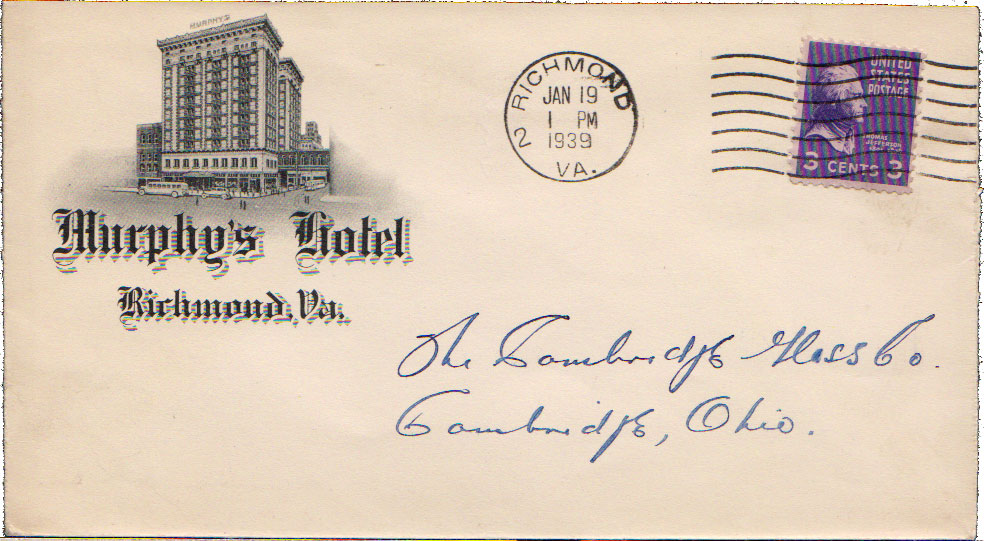 MURPHY'S
Murphy's Hotel
Richmond, Va.
2 RICHMOND
JAN 19
1 PM
1939
VA.
UNITED
STATES
POSTAGE
THOMAS
JEFFERSON
3 CENTS 3
The Cambridge Glass Co.
Cambridge, Ohio.